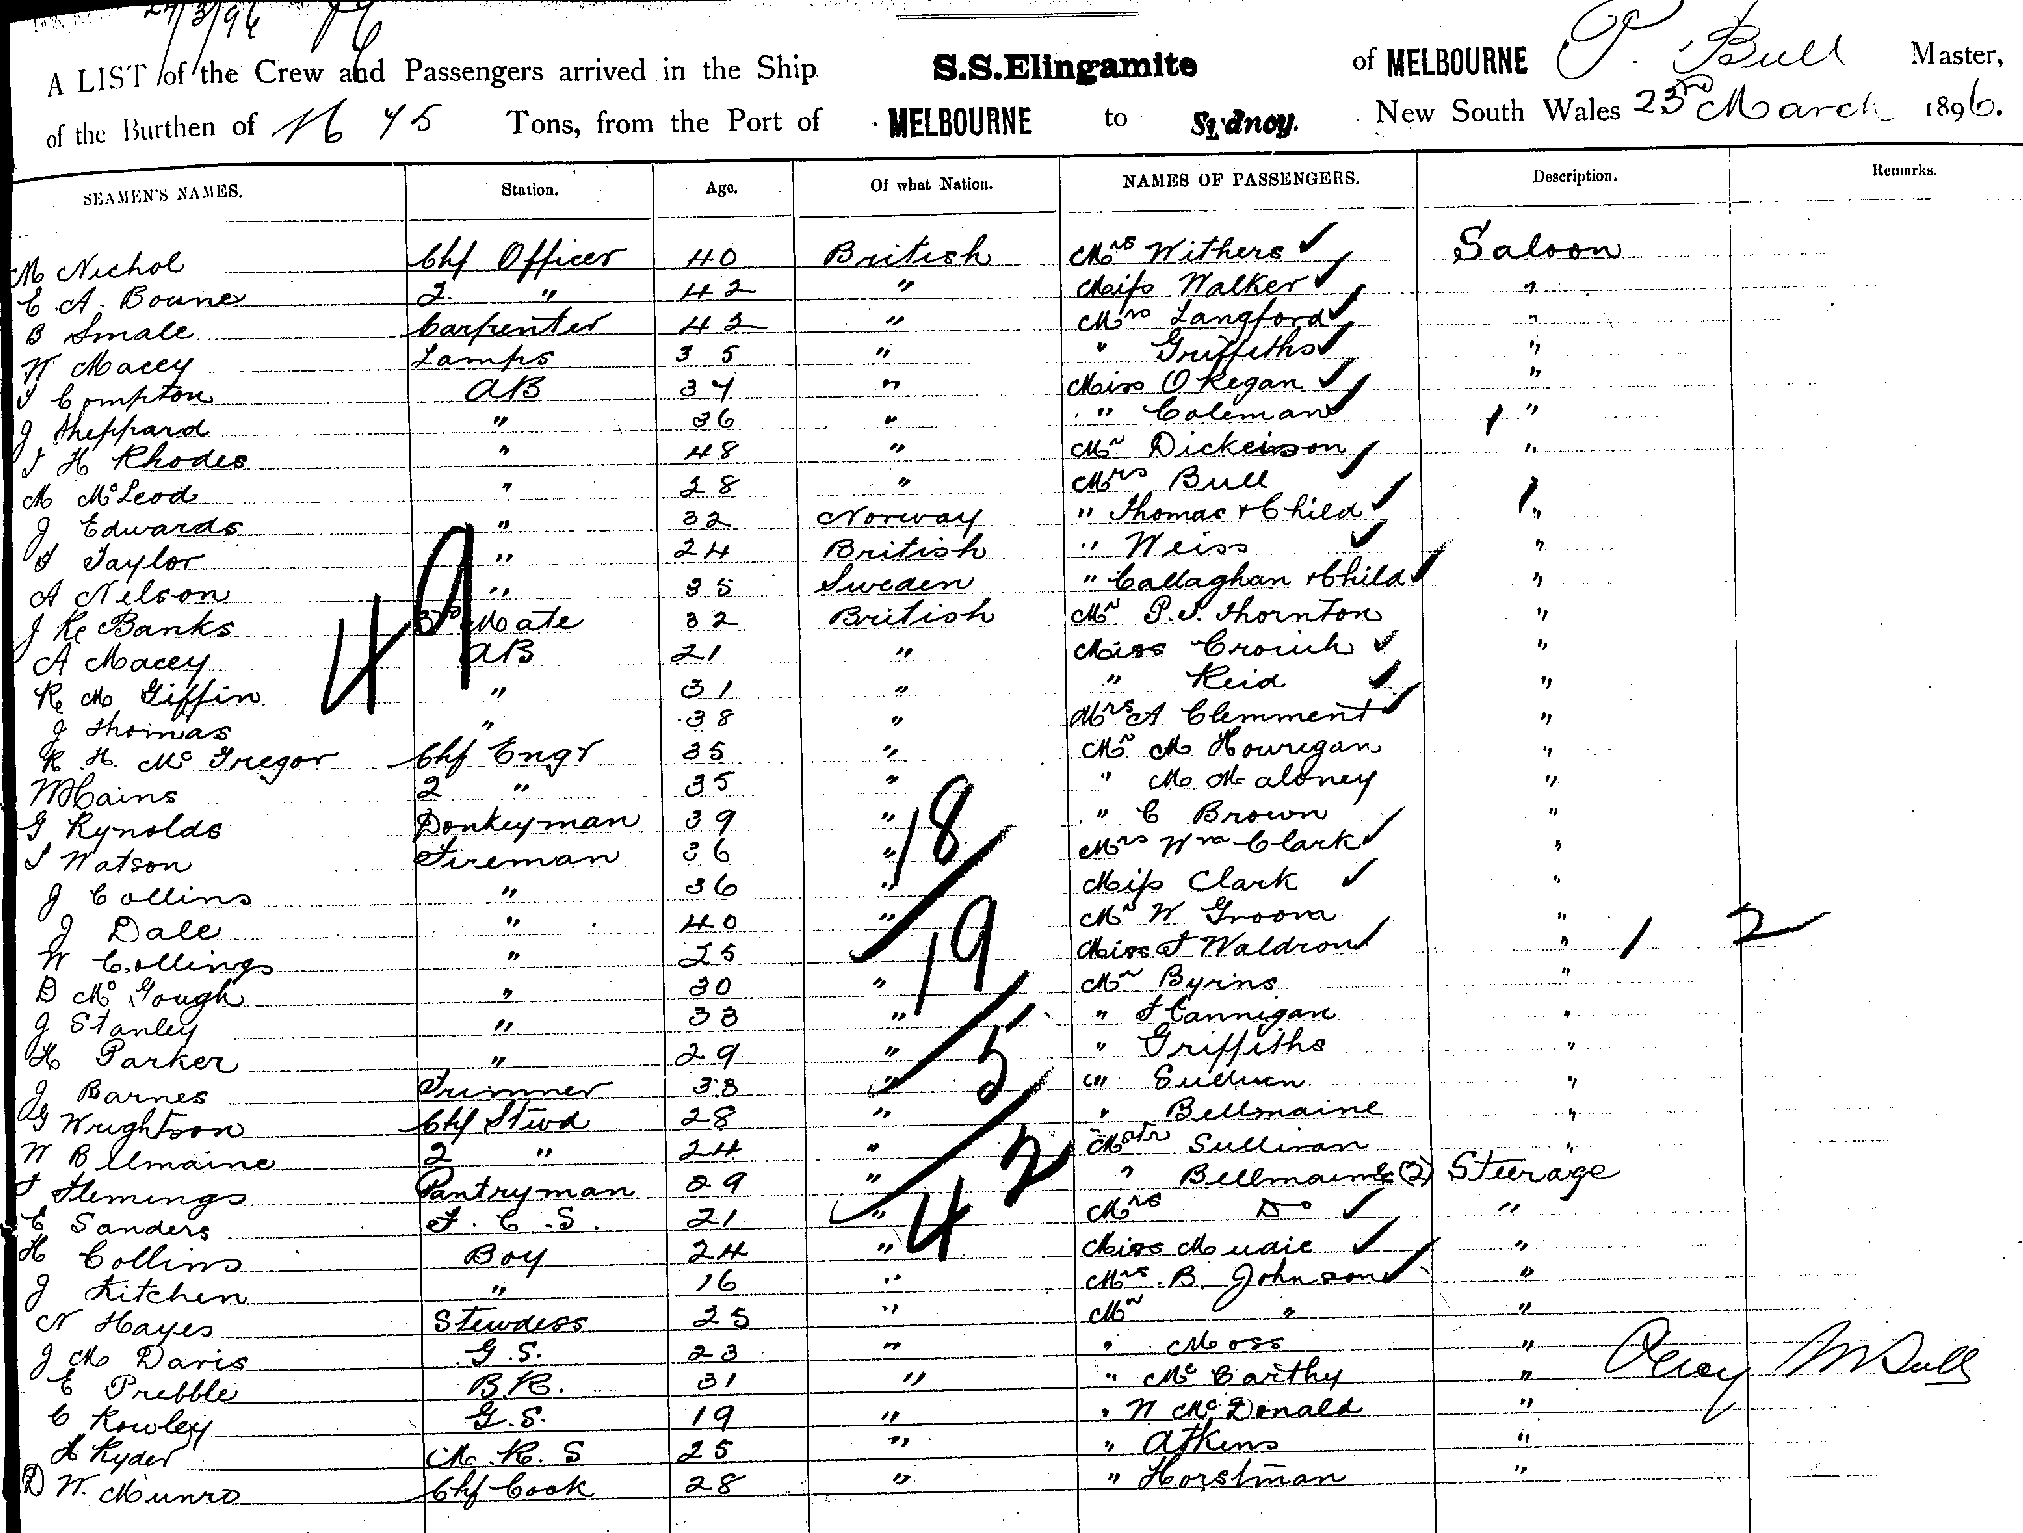 24/3/96
A LIST of the Crew and Passengers arrived in the Ship S.S.Elingamite of MELBOURNE P. Bull Master,
of the Burthen of 1675 Tons, from the Port of MELBOURNE to Sydney. New South Wales 23rd March 1896.
SEAMEN'S NAMES. Station. Age. Of what Nation. NAMES OF PASSENGERS. Description. Remarks.
M Nichol Chf Officer 40 British Mrs Withers Saloon
C A. Boune 2 " 42 " Miss Walker "
B Smale Carpenter 42 " Mrs Langford "
W Macey Lamps 35 " " Griffiths "
T Compton AB 34 " Miss O Kegan "
J Sheppard " 36 " " Coleman "
T H Rhodes " 48 " Mr Dickeinson "
M McLeod " 28 " Mrs Bull "
J Edwards " 32 Norway " Thomas + Child "
T Taylor " 24 British " Weiss "
A Nelson " 35 Sweden " Callaghan + Child "
J R Banks 3rd Mate 32 British Mr P. J. Thornton "
A Macey AB 21 " Miss "
R M Giffin " 31 " " Reid "
J Thomas " 38 " Mrs A Clemment "
R H. McGregor Chf Engr 35 " Mr M Hourigan "
W Hains 2 " 35 " " M Maloney "
G Rynolds Donkeyman 39 " " C Brown "
T Watson Fireman 36 " Mrs Wm Clark "
J Collins " 36 " Miss Clark "
J Dale " 40 " Mr W Groova "
W Collings " 25 " Miss T Waldron "
D McGough " 30 " Mr Byrins "
J Stanley " 33 " " T Cannigan "
H Parker " 29 " " Griffiths "
J Barnes Trimmer 38 " " "
G Wrightson Chf Stwd 28 " " Bellmaine "
W Bellmaine 2 " 24 " Mstr Sullivan "
T Flemings Pantryman 29 " " Bellmaine (2) Steerage
E Sanders F. C. S. 21 " Mrs Do "
H Collins Boy 24 " Miss Mudie "
J Kitchen " 16 " Mrs B Johnson "
N Hayes Stewdess 25 " Mr " "
J M Davis G.S. 23 " " Moss "
E Pribble B.R. 31 " " McCarthy "
C Rowley G.S. 19 " " N McDonald "
H Ryder M. R. S 25 " " Atkins "
D W. Munro Chf Cook 28 " " Horstman "
49
18
19
5
2
4
1 2
Percy W Bull